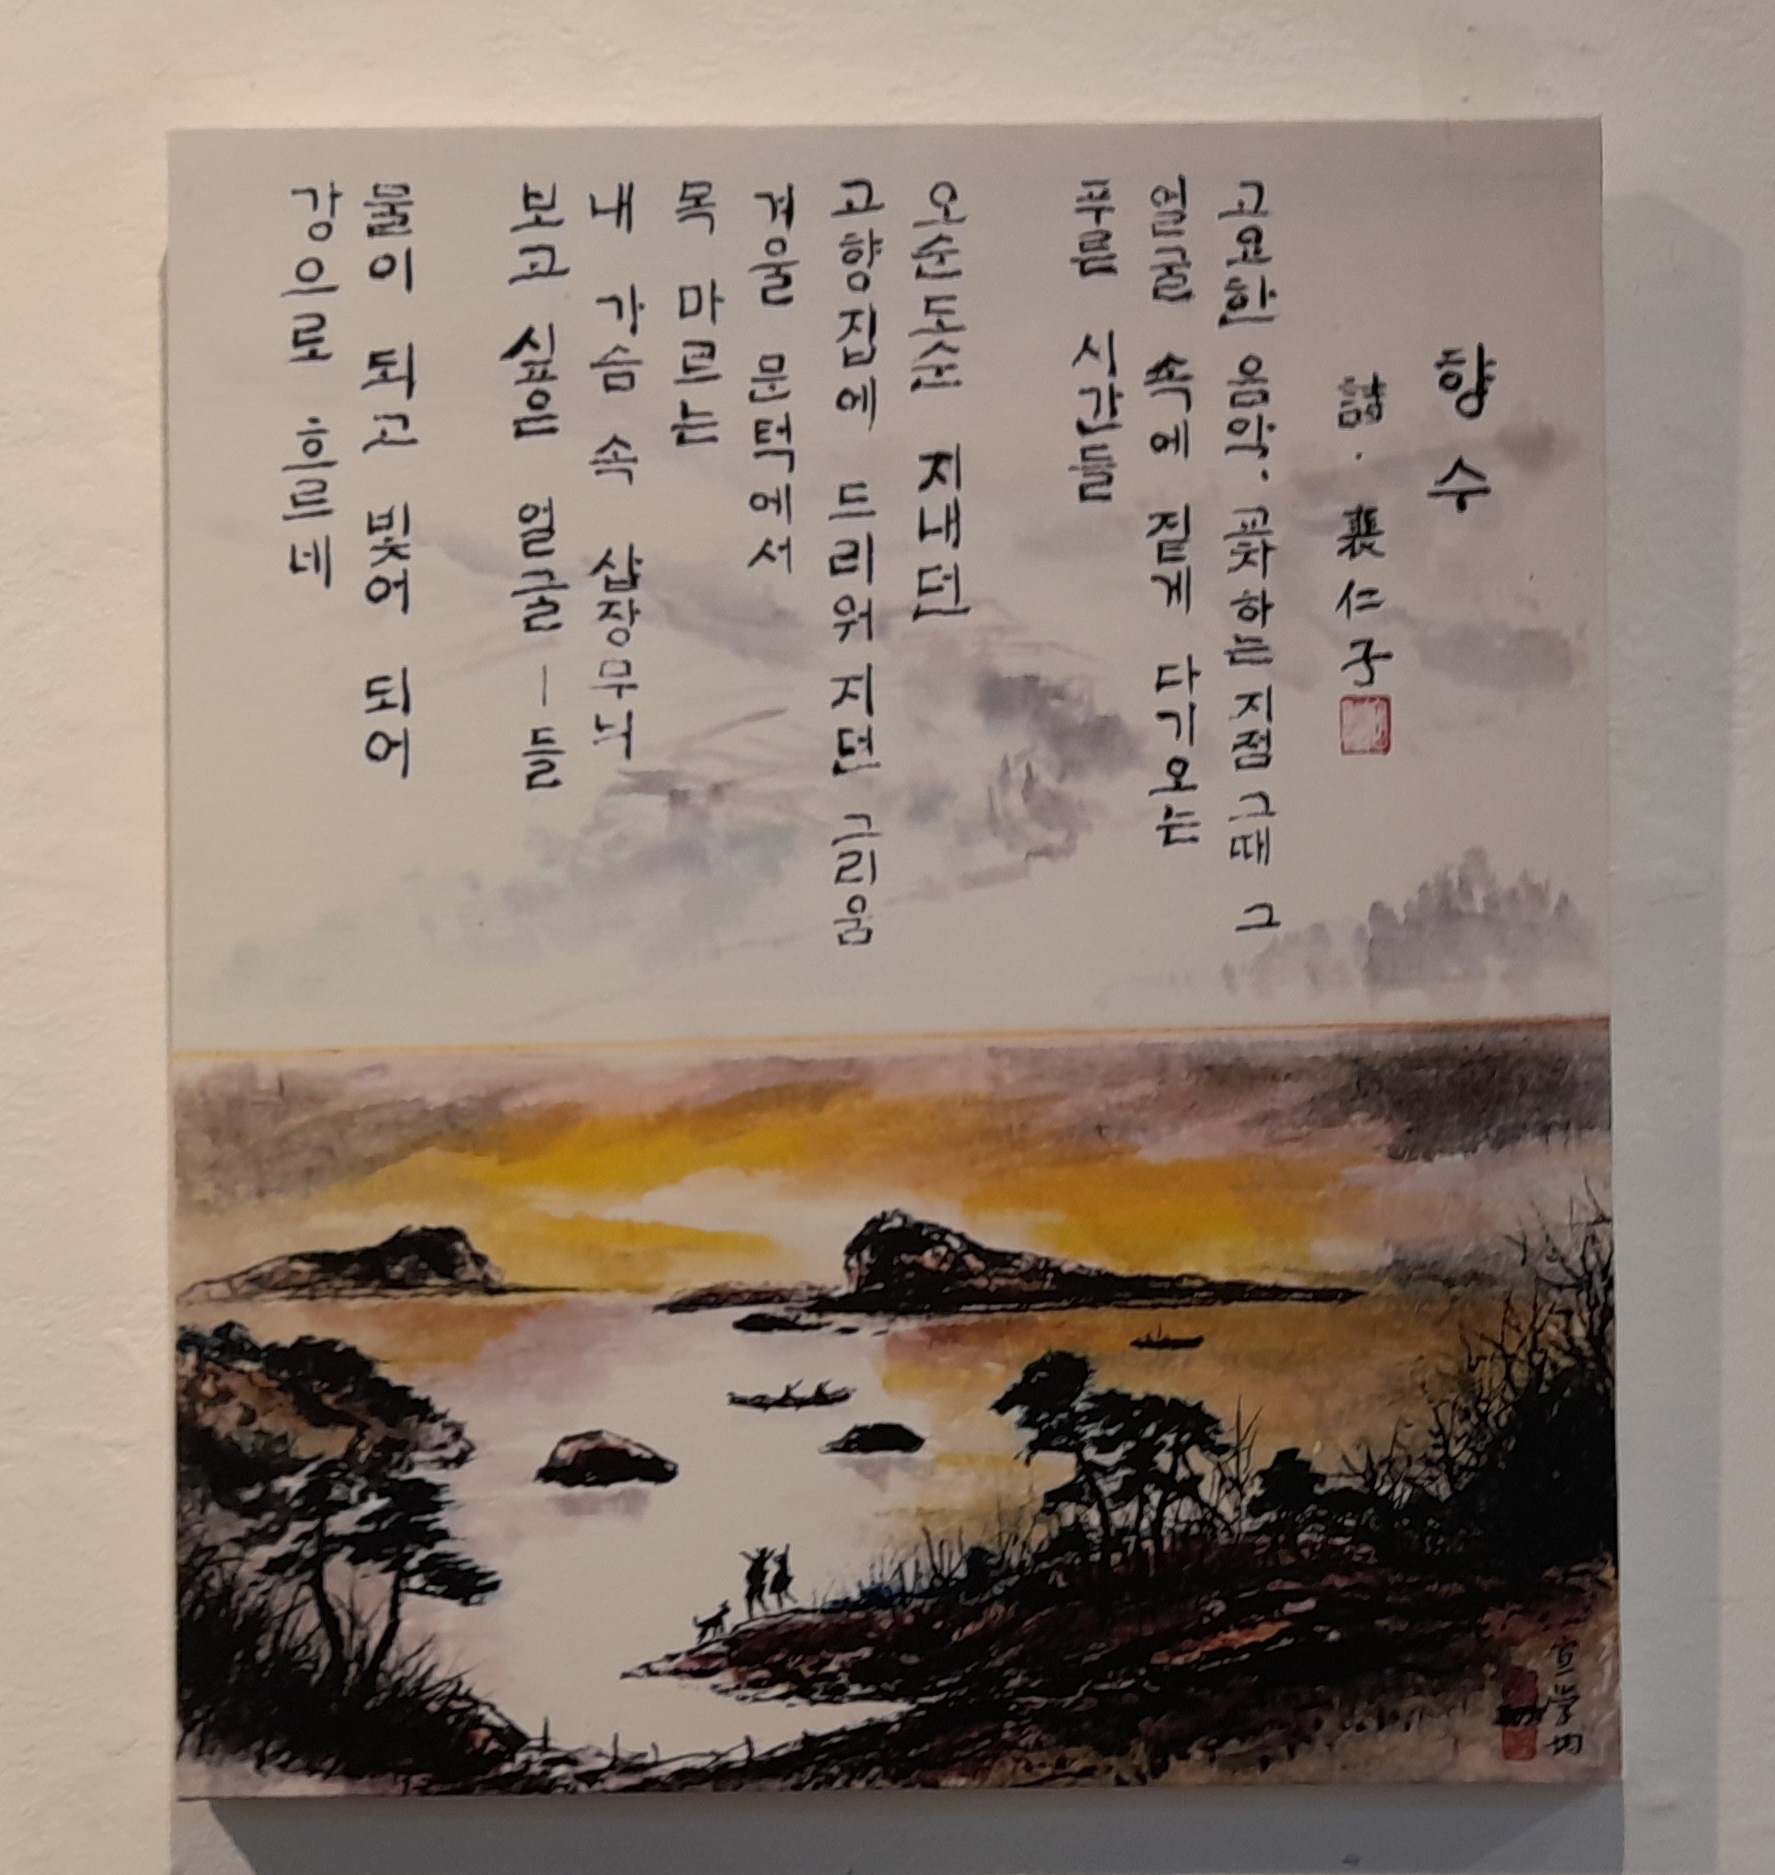 향수
詩·裵仁子
고요한 음악·교차하는 지점 그때 그
얼굴 속에 짙게 다기오는
푸름 시간들
오순도순 지내던
고향집에 드리워지던 그리움
겨울 문턱에서
목 마르는
내 가슴 속
보고 싶은 얼굴ㅡ들
물이 되고 빛어 되어
강으로 흐르네
宣学均